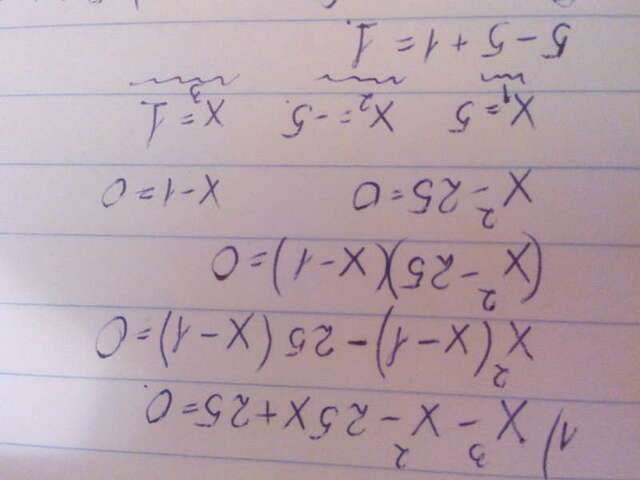 1) x³ - x² - 25x + 25 = 0
x²(x - 1) - 25(x - 1) = 0
(x² - 25)(x - 1) = 0
x² - 25 = 0 x - 1 = 0
x₁ = 5 x₂ = -5 x₃ = 1
5 - 5 + 1 = 1.